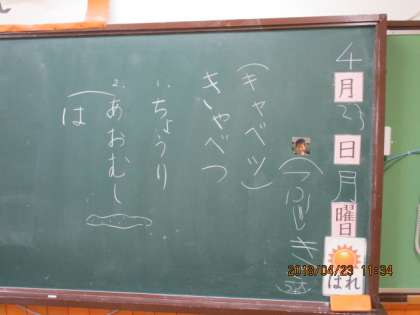 4月23日月曜日
はれ
(キャベツ)
きゃべつ
1.ちょうり
2.あおむし
は
2018/04/23 11:34